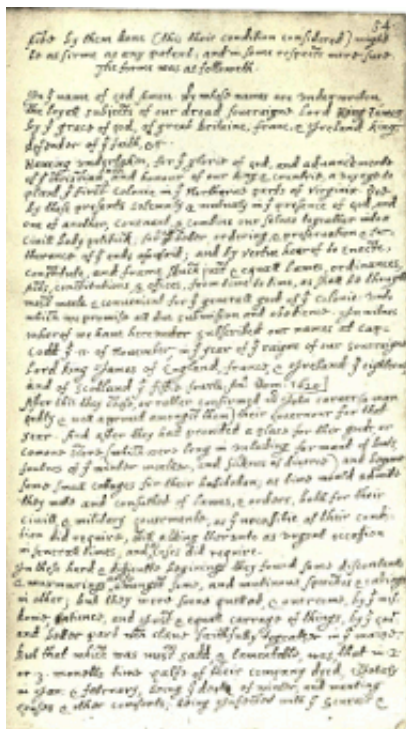 54
by them done (this their condition considered) might
be as firme as any patent; and in some respects more sure.
The forme was as followeth.
In yᵉ name of god, Amen. We whose names are underwriten,
the loyall subjects of our dread soveraigne Lord King James
by yᵉ grace of god, of great Britaine, franc, & Ireland king,
defender of yᵉ faith, &c
Haveing undertaken, for yᵉ glorie of god, and advancemente
of yᵉ christian and honour of our king & countrie, a voyage to
plant yᵉ first colonie in yᵉ Northerne parts of Virginia. Doe
by these presents solemnly & mutualy in yᵉ presence of god, and
one of another, covenant, & combine our selves togeather into a
civill body politick; for yᵉ better ordering, & preservation & fur-
therance of yᵉ ends aforesaid; and by vertue hearof to enacte,
constitute, and frame shuch just & equall lawes, ordinances,
Acts, constitutions, & offices, from time to time, as shall be thought
most meete & convenient for yᵉ generall good of yᵉ colonie: unto
which we promise all due submission and obedience. In witnes
wherof we have hereunder subscribed our names at cap-
Codd yᵉ 11 of November, in yᵉ year of yᵉ raigne of our soveraigne
Lord king James of England, france, & Ireland yᵉ eighteenth
and of Scotland yᵉ fiftie fourth. Ano Dom. 1620]
After this they chose, or rather confirmed mr John carver (a man
godly & well approved amongst them) their Governour for that
year. And after they had provided a place for their goods, or
comone store, (which were long in unlading for want of boats,
foulnes of yᵉ winter weather, and sicknes of diverce) and begune
some small cottages for their habitation; as time would admitte
they mette and consulted of lawes, & orders, both for their
civill & military Govermente, as yᵉ necessitie of their condi-
tion did require, still adding therunto as urgent occasion
in severall times, and as cases did require.
In these hard & difficulte beginings they found some discontents
& murmurings amongst some, and mutinous speeches & cariags
in other; but they were soone quelled, & overcome, by yᵉ wis-
dome, patience, and just & equall carrage of things, by yᵉ Govr
and better part wch clave faithfully togeather in yᵉ maine.
but that which was most sadd, & lamentable, was, that in 2
or 3 moneths time halfe of their company dyed, espetialy
in Jan: & february, being yᵉ depth of winter, and wanting
houses & other comforts; being infected with yᵉ scurvie &